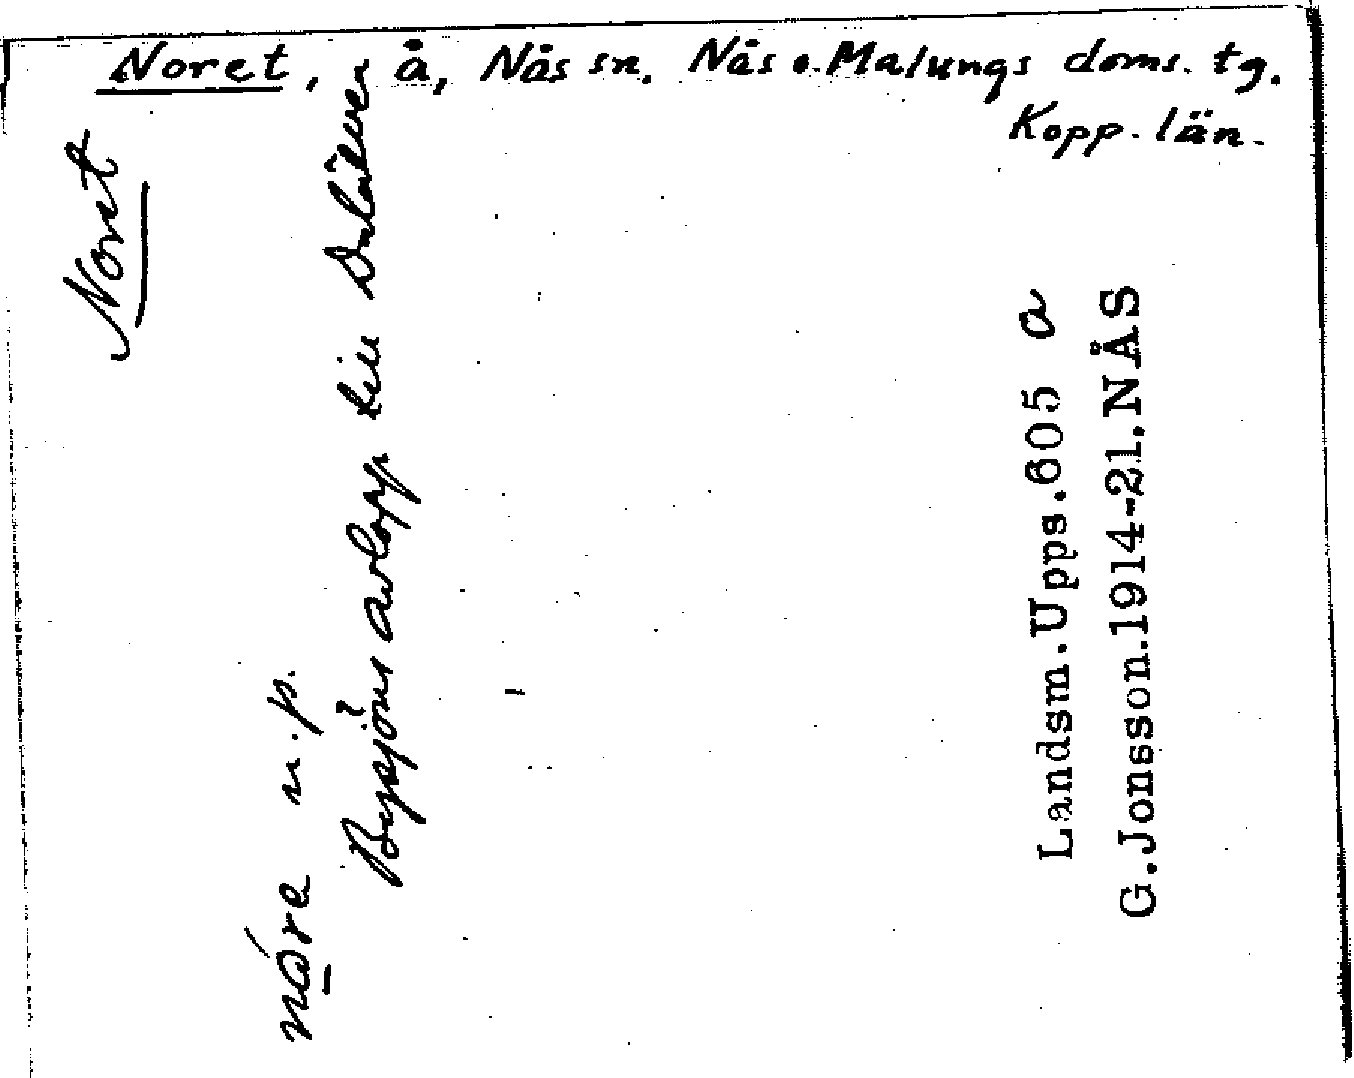 Noret, å, Nås sn. Nås o. Malungs doms. tg.
Kopp. län.
Noret
nóre n.p.
Bysjöns avlopp till Dalälven
Landsm. Upps. 605 a
G. Jonsson. 1914-21. NÅS